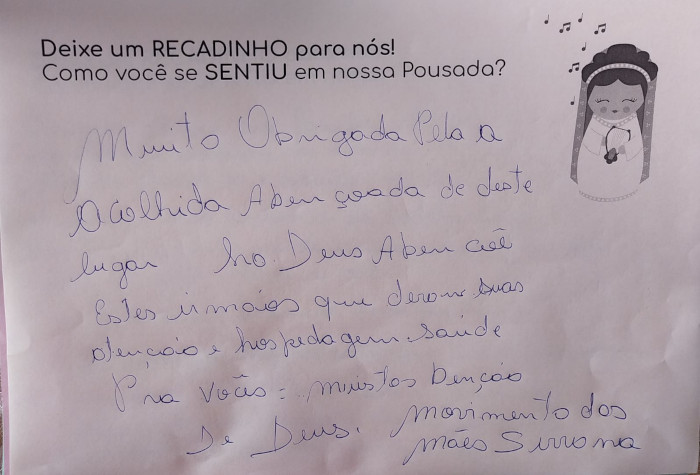 Deixe um RECADINHO para nós!
Como você se SENTIU em nossa Pousada?
Muito Obrigada Pela a
acolhida Aben çoada de deste
lugar ho Deus Aben çõe
Estes irmãos que deram suas
atenção e hospedagem saúde
Pra vocês: muistos Benção
De Deus. movimento dos
mães